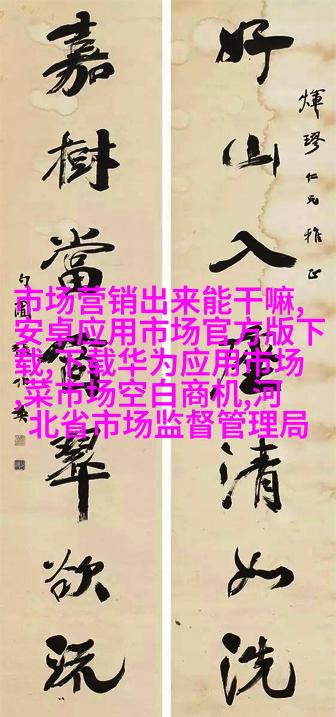 好山入清如洗
煇璆仁兄雅正
嘉樹當翠欲流
市场营销出来能干嘛,
安卓应用市场官方版下
载,下载华为应用市场
,菜市场空白商机,河
北省市场监督管理局